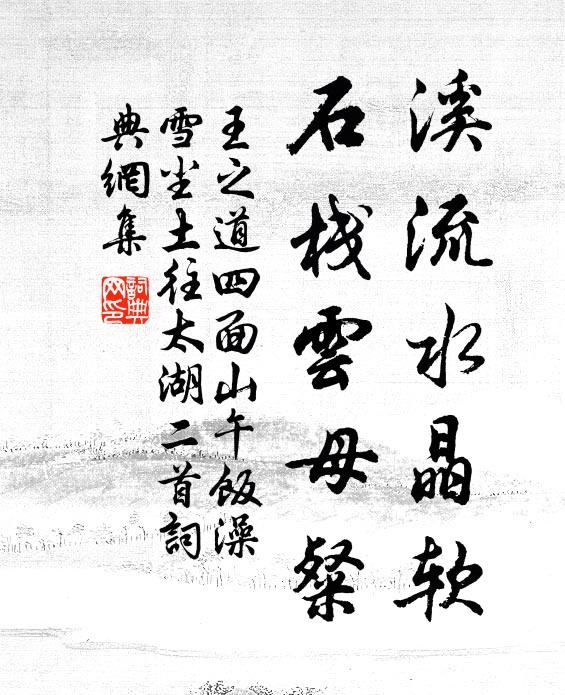 溪流水晶软
石栈雲母粲
王之道四面山午飯澡
雪坐土往太湖二首詞
典網集
詞典
网印